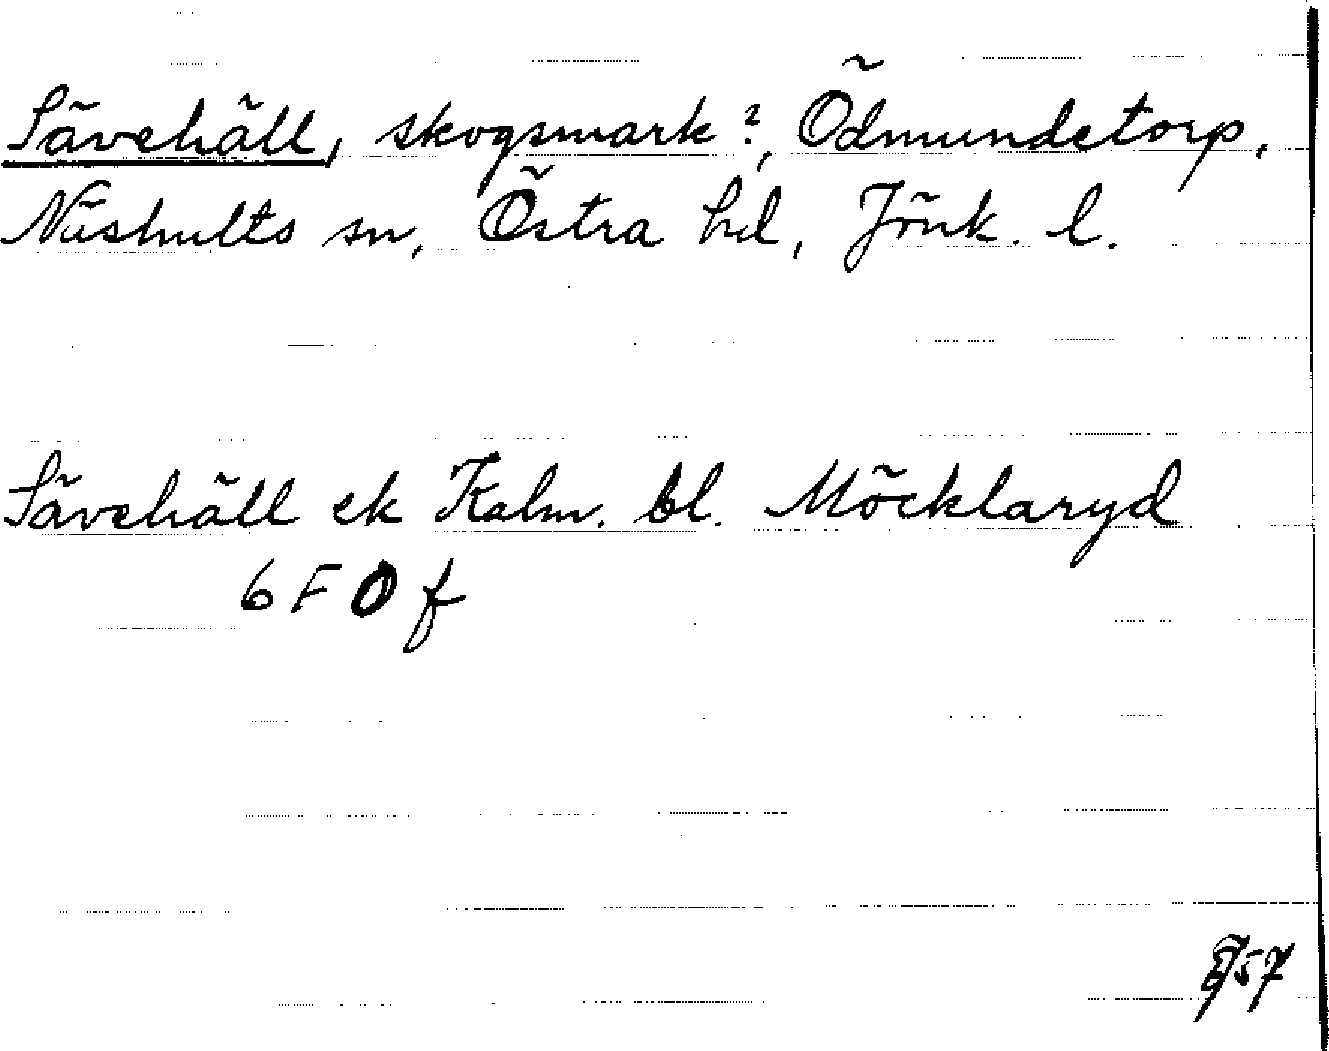 Sävehäll, skogsmark?, Ödmundetorp,
Näshults sn, Östra hd, Jönk. l.
Sävehäll ek Kalm. bl. Möcklaryd
6 F 0 f